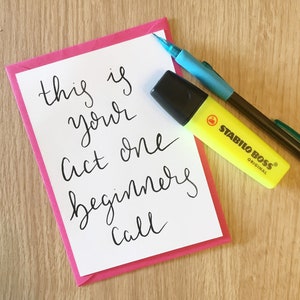 this is
your
act one
beginners
call
STABILO BOSS
ORIGINAL